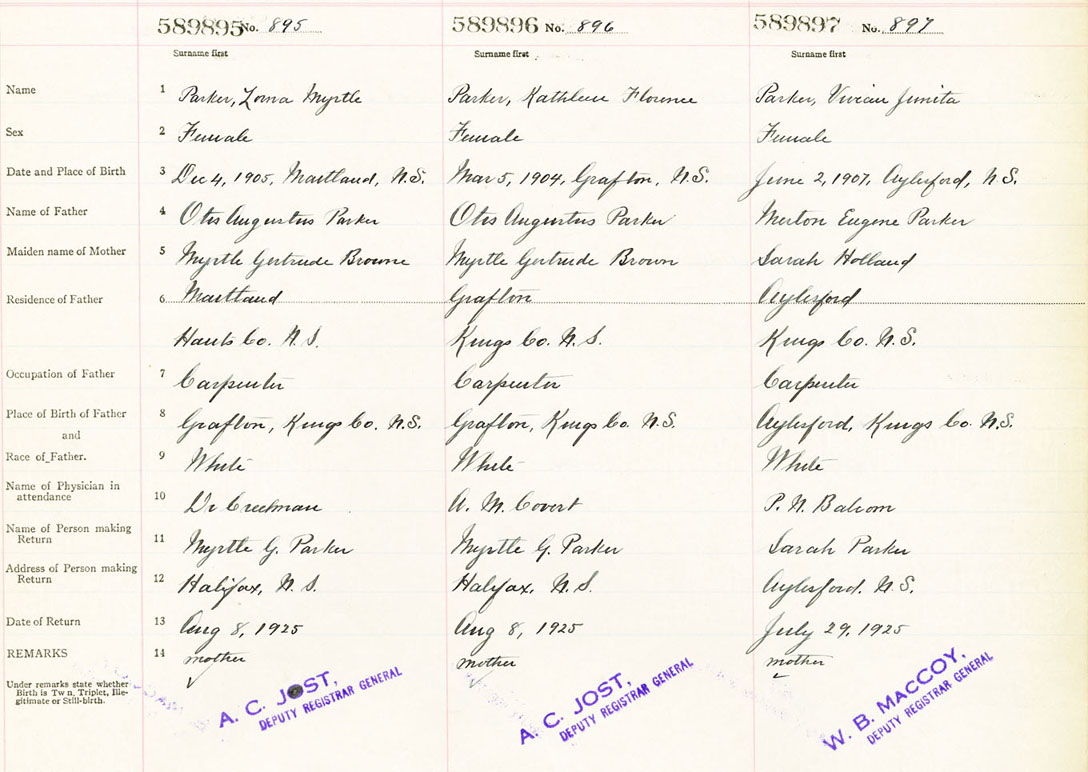 589895 No. 895 589896 No. 896 589897 No. 897
Surname first Surname first Surname first
Name 1 Parker, Lorna Myrtle Parker, Kathleen Florence Parker, Vivian Junita
Sex 2 Female Female Female
Date and Place of Birth 3 Dec 4, 1905, Maitland, N.S. Mar 5, 1904, Grafton, N.S. June 2, 1907, Aylesford, N S.
Name of Father 4 Otis Augustus Parker Otis Augustus Parker Merton Eugene Parker
Maiden name of Mother 5 Myrtle Gertrude Browne Myrtle Gertrude Brown Sarah Holland
Residence of Father 6 Maitland Grafton Aylesford
Hants Co. N.S. Kings Co. N.S. Kings Co. N.S.
Occupation of Father 7 Carpenter Carpenter Carpenter
Place of Birth of Father 8 Grafton, Kings Co. N.S. Grafton, Kings Co. N.S. Aylesford, Kings Co. N.S.
and
Race of Father. 9 White White White
Name of Physician in
attendance 10 Dr Creelman A. M. Covert P. N. Balcom
Name of Person making
Return 11 Myrtle G. Parker Myrtle G. Parker Sarah Parker
Address of Person making
Return 12 Halifax, N.S. Halifax, N.S. Aylesford, N.S.
Date of Return 13 Aug 8, 1925 Aug 8, 1925 July 29, 1925
REMARKS 14 mother mother mother
Under remarks state whether
Birth is Tw n, Triplet, Ille-
gitimate or Still-birth.
A. C. JOST,
DEPUTY REGISTRAR GENERAL
A. C. JOST,
DEPUTY REGISTRAR GENERAL
W. B. MacCOY,
DEPUTY REGISTRAR GENERAL